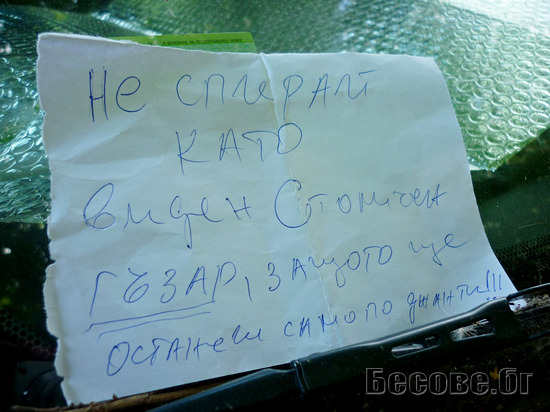 Не спирай
като
виден Столичен
гъзар, защото ще
останеш само по джанти!!!
Бесове.бг